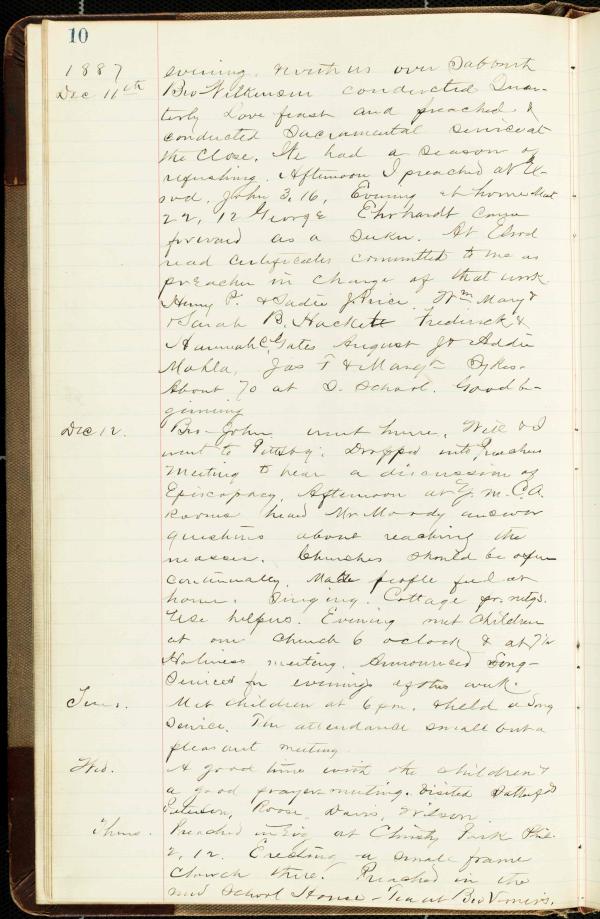 10
1887
Dec 11th
evening. with us over Sabbath
Bro Wilkinson conducted Quar-
terly Love feast and preached &
conducted Sacramental service at
the close. We had a season of
refreshing. Afternoon I preached at El-
rod, John 3, 16, Evening at home Mat
22, 12 George Ehrhardt came
forward as a seeker. At Elrod
read certificates committed to me as
preacher in charge of that work
Henry P. & Sadie J. Price Wm Mary &
& Sarah B. Hackett Fredrick &
Hannah C. Gates August J & Addie
Mahla, Jas T & Mary Sykes.
About 70 at S. School. Good be-
ginning
Dec 12.
Bro John went home. Will & I
went to Pittsbg. Dropped into Preachers
Meeting to hear a discussion of
Episcopacy. Afternoon at Y.M.C.A.
Rooms heard Mr. Moody answer
questions about reaching the
masses. Churches should be open
continually. Make people feel at
home. Singing. Cottage pr. metgs.
Use helpers. Evening met children
at our church 6 oclock & at 7 1/2
Holiness meeting. Announced Song-
Services for evenings of this week
Tues.
Met children at 6 pm. & held a Song
Service. The attendance small but a
pleasant meeting
Wed.
A good time with the children &
a good prayer-meeting. Visited
Peterson, Roose, Davis, Wilson
Thurs.
Preached in Evg at Christy Park Phil.
2, 12. Erecting a small frame
church there. Preached in the
new School House - Tea at Bro